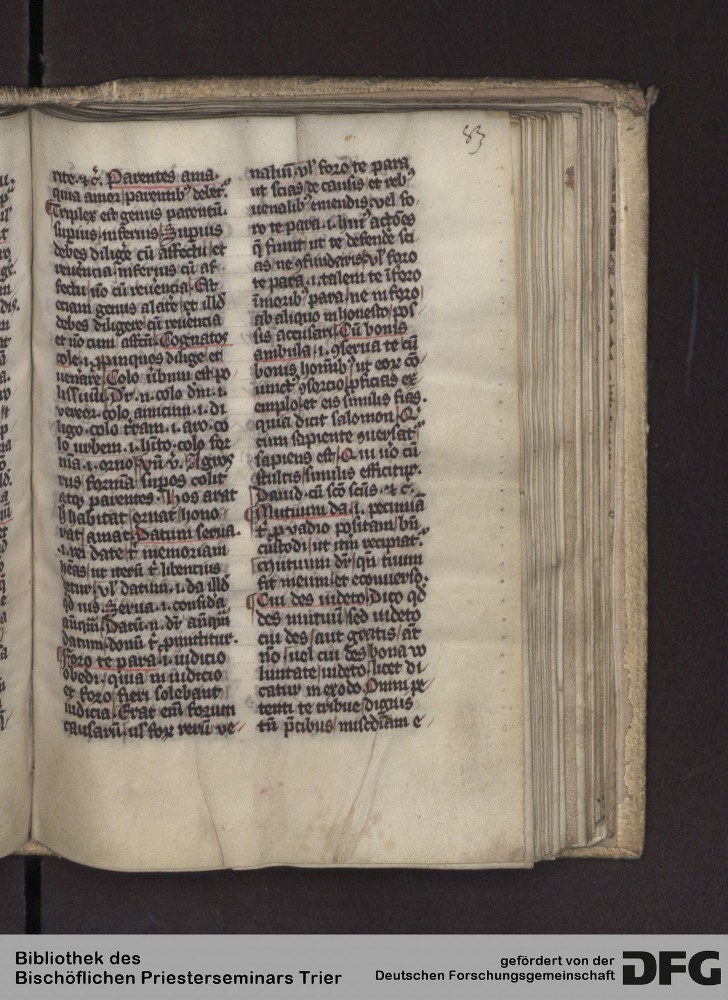 83
Parentes ama.
quia amor parentibꝫ debet.
Triplex est genus parentū.
supius. inferius. Supius
debes diligē cū affectu et
reuēncia. inferius cū af
fectu ñ cū reuēncia. Est
eciam genus a latē. et illd
debes diligere cū reuēncia
et ñ cum affcū. Cognatos
cole .i. ꝓpinquos dilige et
uenāre. Colo ūbum est po
colo dm̄ .i.
uereor. colo amicum .i. di
ligo. colo tr̄am .i. aro. co
lo urbem .i. hīto. colo for
mā .i. orno. Vn̄ v̄. Agros
rus formā supos colit
atqꝫ parentes. hos arat
habitat ornat hono
rat amat. Datum serua.
.i. rei date memoriam
ut iterū libencius
detur. ul' datum .i. da illd
qd uis. Serua .i. confida
Datū n. dr̄
datum. donū
Foro te para .i. iudicio
obedi. quia in iudicio
et foro fieri solebant
iudicia. Erat em̄ forum
causarū. ul' foꝝ rerū ue
naliū. ul' foro te para
ut scias de causis et rebꝫ
uenalibꝫ emendis. uel fo
ro te para .i. hn̄t actōes
q̄ sunt ut te defendē sci
as ne ꝯfundaris. ul' foro
te para .i. talem te ī foro
ī moribꝫ para. ne in foro
ab aliquo inhonesto pos
sis accusari. Cū bonis
ambula .i. ꝯserua te cū
bonis hoībꝫ. ut eoꝝ cō
ꝯsorcio ꝓficias ex
emplo. et eis similis fias.
quia dicit salomon. Q
cum sapiente ꝯuersat
sapiens est. Qui ñ cū
stultis similis efficitur.
Dauid. cū sco scus. et c̄.
Mutuum da .i. pecuniā
ꝓ uadio positam bn̄
custodi. ut itm̄ recipiat.
Mutuum dr̄ qn̄ tuum
fit meum. et econuerso.
Cui des uideto. Dico qd
des mutuū. sed uideto
cui des. aut gratis. an̄
ñ. uel cui des bona uo
luntate. uideto. licet di
catur in exodo. Omni pe
tenti te tribue. dignus
tn̄ p̄cibus. miscdiam e
Bibliothek des
Bischöflichen Priesterseminars Trier
gefördert von der
Deutschen Forschungsgemeinschaft
DFG